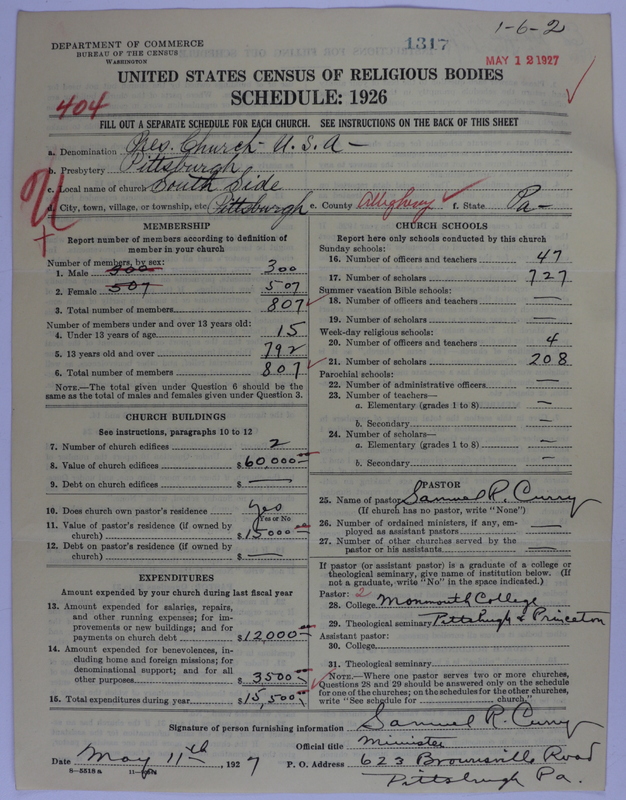 1-6-2
DEPARTMENT OF COMMERCE
BUREAU OF THE CENSUS
WASHINGTON
1317
MAY 12 1927
UNITED STATES CENSUS OF RELIGIOUS BODIES
SCHEDULE: 1926
404
FILL OUT A SEPARATE SCHEDULE FOR EACH CHURCH. SEE INSTRUCTIONS ON THE BACK OF THIS SHEET
a. Denomination Pres. Church - U.S.A -
b. Presbytery Pittsburgh
c. Local name of church South Side
d. City, town, village, or township, etc Pittsburgh e. County Allegheny f. State Pa-
MEMBERSHIP
Report number of members according to definition of
member in your church
Number of members, by sex:
1. Male 300 300
2. Female 507 507
3. Total number of members 807
Number of members under and over 13 years old:
4. Under 13 years of age 15
5. 13 years old and over 792
6. Total number of members 807
NOTE.—The total given under Question 6 should be the
same as the total of males and females given under Question 3.
CHURCH BUILDINGS
See instructions, paragraphs 10 to 12
7. Number of church edifices 2
8. Value of church edifices $ 60,000
9. Debt on church edifices $ —
10. Does church own pastor's residence yes
Yes or No
11. Value of pastor's residence (if owned by
church) $ 15000
12. Debt on pastor's residence (if owned by
church) $ —
EXPENDITURES
Amount expended by your church during last fiscal year
13. Amount expended for salaries, repairs,
and other running expenses; for im-
provements or new buildings; and for
payments on church debt $ 12000
14. Amount expended for benevolences, in-
cluding home and foreign missions; for
denominational support; and for all
other purposes $ 3500
15. Total expenditures during year $ 15,500
CHURCH SCHOOLS
Report here only schools conducted by this church
Sunday schools:
16. Number of officers and teachers 47
17. Number of scholars 727
Summer vacation Bible schools:
18. Number of officers and teachers —
19. Number of scholars —
Week-day religious schools:
20. Number of officers and teachers 4
21. Number of scholars 208
Parochial schools:
22. Number of administrative officers —
23. Number of teachers—
a. Elementary (grades 1 to 8) —
b. Secondary —
24. Number of scholars—
a. Elementary (grades 1 to 8) —
b. Secondary —
PASTOR
25. Name of pastor Samuel R. Curry
(If church has no pastor, write "None")
26. Number of ordained ministers, if any, em-
ployed as assistant pastors —
27. Number of other churches served by the
pastor or his assistants —
If pastor (or assistant pastor) is a graduate of a college or
theological seminary, give name of institution below. (If
not a graduate, write "No" in the space indicated.)
Pastor: 2
28. College Monmouth College
29. Theological seminary Pittsburgh & Princeton
Assistant pastor:
30. College
31. Theological seminary
NOTE.—Where one pastor serves two or more churches,
Questions 28 and 29 should be answered only on the schedule
for one of the churches; on the schedules for the other churches,
write "See schedule for church."
Signature of person furnishing information Samuel R. Curry
Official title Minister
Date May 11th, 1927 P. O. Address 623 Brownsville Road
Pittsburgh Pa.
8-5518a